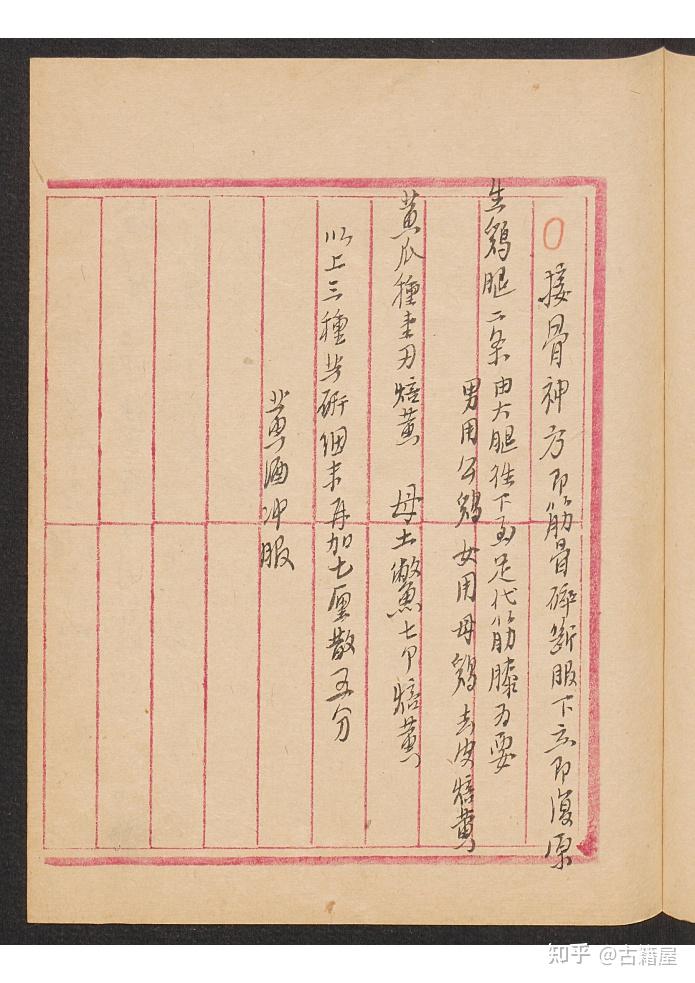 ○接骨神方即筋骨碎斷服下立即復原
生鷄腿二条由大腿往下至足代筋膝為要
男用公鷄女用母鷄去皮焙黄
黄瓜種 焙黄 母土鱉七个焙黄
以上三種共研細末再加七厘散五分
黄酒冲服
知乎 @古籍屋